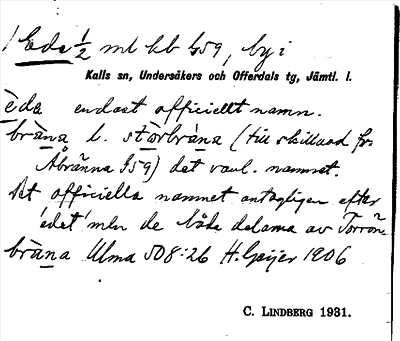 1 Ede 1/2 ml kb G59, by i
Kalls sn, Undersåkers och Offerdals tg, Jämtl. l.
èda endast officiellt namn.
bräna l. stórbräna (till skillnad fr.
Åbränna G59) det vanl. namnet.
Det officiella namnet antagligen efter
'edet' mln de båda delarna av Torrön.
bräna Ulma 508:26 H. Geijer 1906
C. LINDBERG 1931.